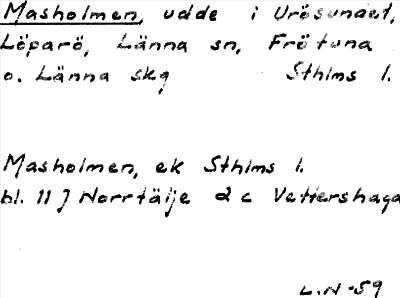 Masholmen, udde i Urösundet,
Löparö, Länna sn, Frötuna
o. Länna skg Sthlms l.
Masholmen, ek Sthlms l.
bl. 11 J Norrtälje 2 c Vettershaga
L.N -59